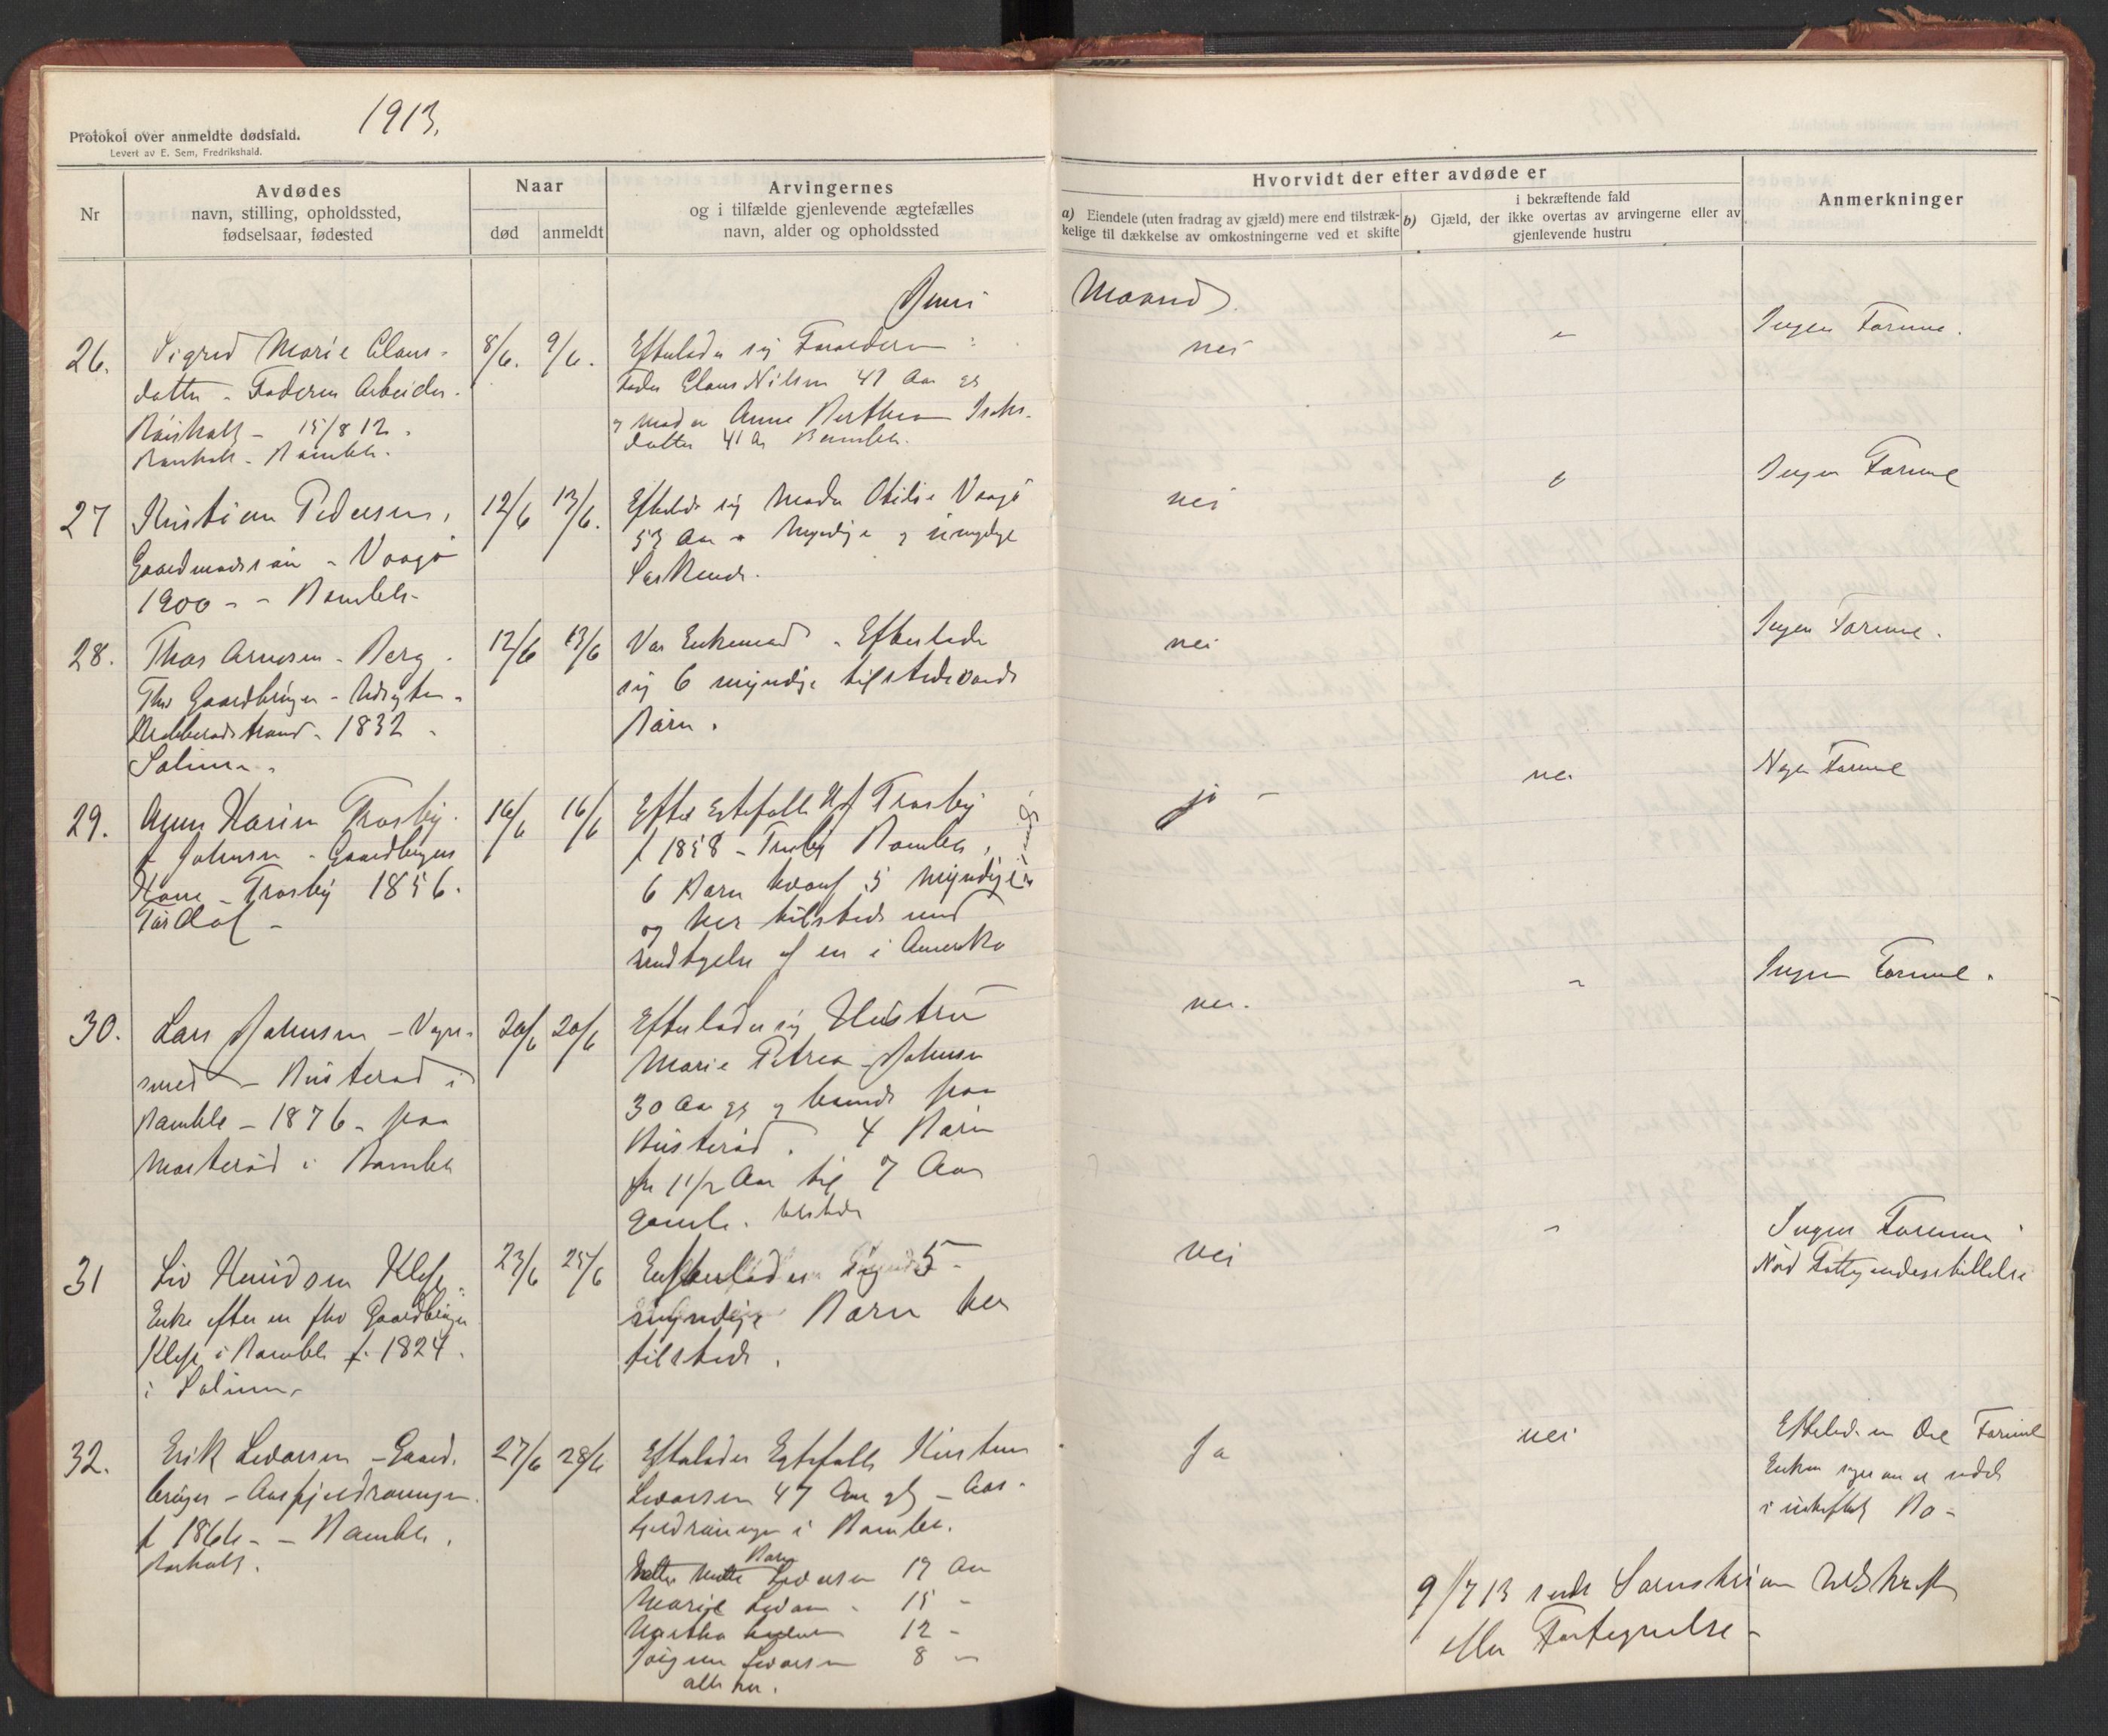 1913.
Protokol over anmeldte dødsfald.
Levert av E. Sem, Fredrikshald.
Nr
Avdødes
navn, stilling, opholdssted,
fødselsaar, fødested
Naar
død
anmeldt
Arvingernes
og i tilfælde gjenlevende ægtefælles
navn, alder og opholdssted
Hvorvidt der efter avdøde er
a) Eiendele (uten fradrag av gjæld) mere end tilstræk-
kelige til dækkelse av omkostningerne ved et skifte
i bekræftende fald
b) Gjæld, der ikke overtas av arvingerne eller av
gjenlevende hustru
Anmerkninger
Juni Maaned
26.
Sigrid Marie Claus-
datter - Faderen Arbeider.
Rønholt - 15/8 12.
Rønholt - Bamble.
8/6. 9/6.
Efterlader sig Forældre:
Fader Claus Nilsen 41 Aar gl
og moder Anne Berthea Isaks-
datter 41 Aar Bamble.
nei
-
Ingen Formue.
27
Kristian Pedersen,
Gaardmandssøn - Vaagø
1900 - - Bamble -
12/6 13/6.
Efterlader sig Moder Otilie Vaagø
53 Aar - Myndige og umyndige
Søskende.
nei
Ingen Formue
28.
Thor Arnesen - Berg.
Fhv Gaardbruger - Udsigten -
strand - 1832 -
Solum -
12/6 13/6
Var Enkemand - Efterlader
sig 6 myndige tilstedeværende
Børn.
nei
Ingen Formue.
29.
Anne Karine Trosby.
f Johnsen - Gaardbrugers
Kone - Trosby 1856.
Tørdal -
16/6 16/6
Efter Egtefælle Trosby
f 1858 - Trosby Bamble,
6 Børn hvoraf 5 myndige
og her tilstede med
undtagelse af en i Amerika
ja -
nei
Nogen Formue
30.
Lars Johnsen - Vogn-
smed - Rusterød i
Bamble - 1876 - paa
i Bamble
20/6 20/6
Efterlader sig Hustru
Marie Petrea Johnsen
30 Aar gl og boende paa
Rusterød. 4 Børn
fra 1 1/2 Aar til 7 Aar
gamle. tilstede
nei.
-
Ingen Formue.
31
Liv Knudsen Kleppe
Enke efter en fhv Gaardbruger
i Bamble f. 1824.
i Solum -
23/6 25/6
Efterlader sig 5 -
myndige Børn her
tilstede.
nei
-
Ingen Formue
Nød Fattigunderstøttelse
32.
Erik Levorsen - Gaard-
bruger - Aasfjeldrønningen.
f 1866 - - Bamble.
27/6 28/6
Efterlader Egtefælle Kirsten
Levorsen 47 Aar gl - Aas-
fjeldrønningen i Bamble.
Børn
Levorsen 19 Aar
Marie Levorsen - 15 -
Martha Levorsen 12 -
Jørgen Levorsen 8 -
alle her.
Ja
nei
Efterlader en Del Formue
Enken
i uskiftet Bo -
9/7 13 sendt Sorenskriveren Udskrift
eller Fortegnelse -